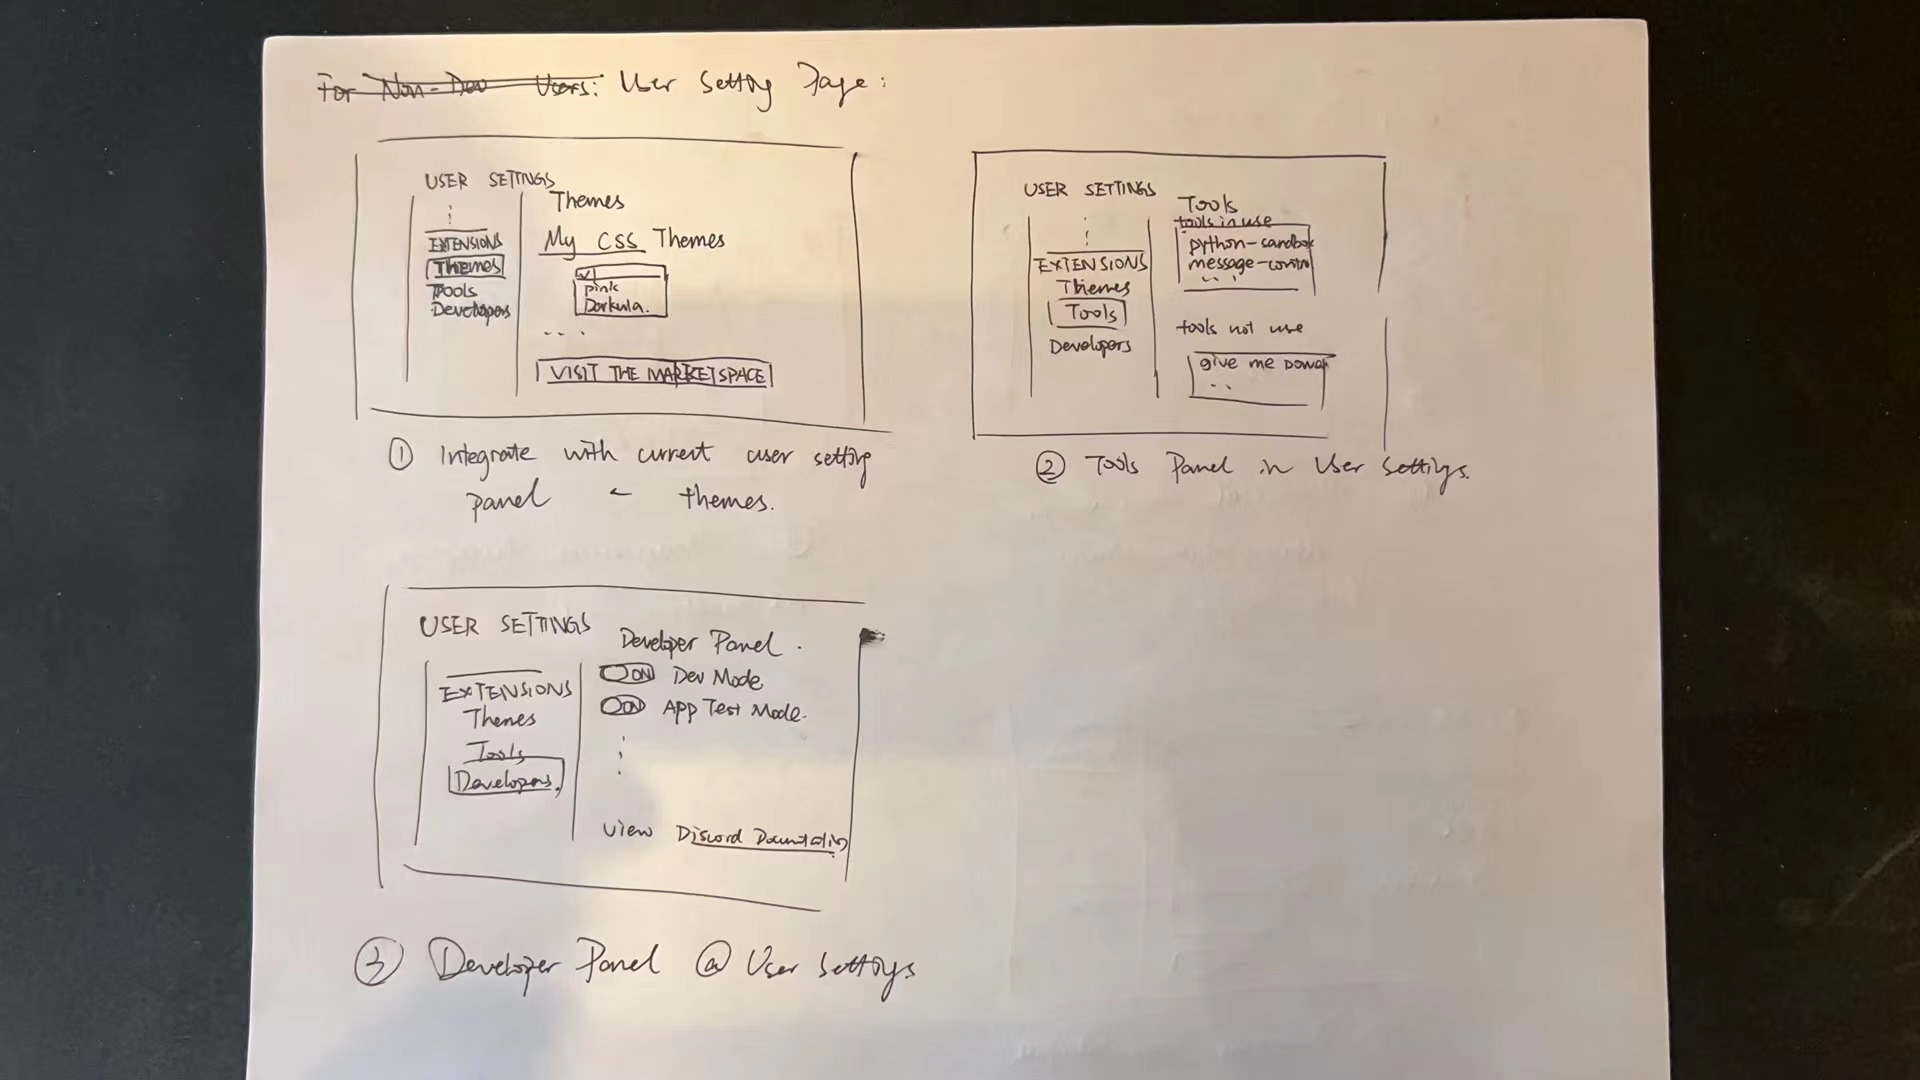 For Non-Dev Users: User Setting Page:
USER SETTINGS
EXTENSIONS
Themes
Tools
Developers
Themes
My CSS Themes
pink
Darkula.
...
VISIT THE MARKETSPACE
① Integrate with current user setting
panel - themes.
USER SETTINGS
EXTENSIONS
Themes
Tools
Developers
Tools
tools in use
python-sandbox
message-control
...
tools not use
give me power
..
② Tools Panel in User Settings.
USER SETTINGS
EXTENSIONS
Themes
Tools
Developers.
Developer Panel.
ON Dev Mode
ON App Test Mode.
view Discord
③ Developer Panel @ User Settings